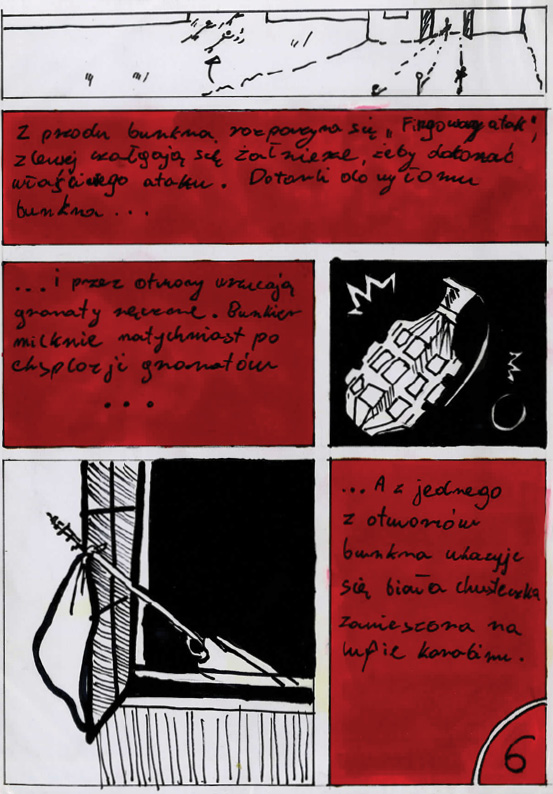 Z przodu bunkra rozpoczyna się „Fingowany atak",
z lewej czołgają się żołnierze, żeby dokonać
właściwego ataku. Dotarli do wyłomu
bunkra...
... i przez otwory wrzucają
granaty ręczne. Bunkier
milknie natychmiast po
eksplozji granatów
...
... A z jednego
z otworów
bunkra ukazuje
się biała chusteczka
zawieszona na
lufie karabinu.
6